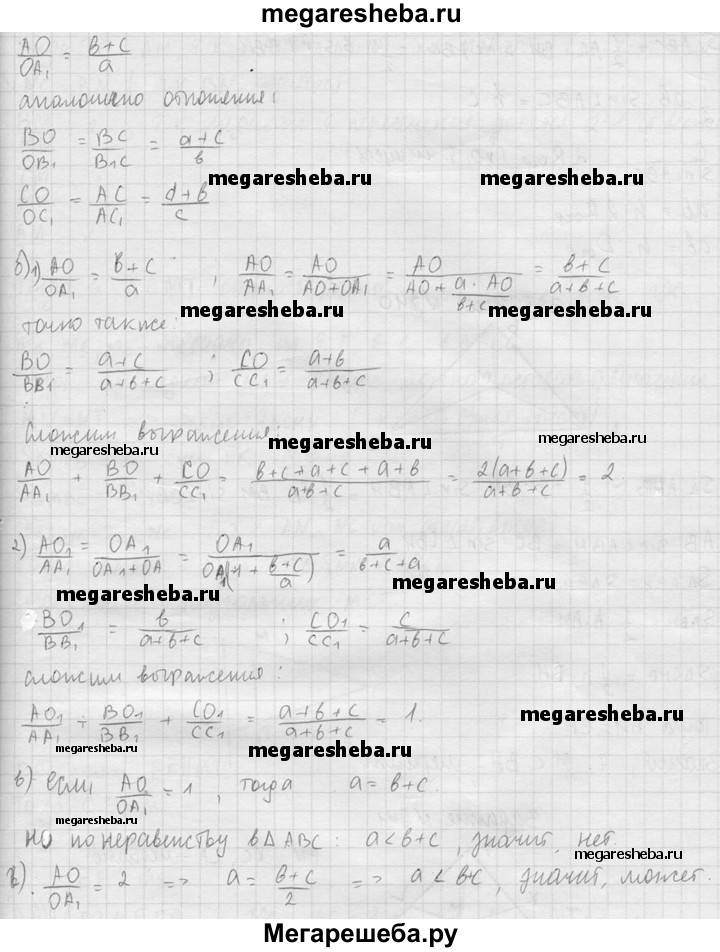 megaresheba.ru
AO/OA₁ = (в+с)/a
аналогично отношения:
BO/OB₁ = BC/B₁C = (a+c)/в
megaresheba.ru megaresheba.ru
CO/OC₁ = AC/AC₁ = (d+в)/c
б) 1) AO/OA₁ = (в+с)/a ; AO/AA₁ = AO/(AO+OA₁) = AO/(AO + a·AO/(в+c)) = (в+с)/(a+в+c)
megaresheba.ru megaresheba.ru
точно также:
BO/BB₁ = (a+c)/(a+в+c) ; CO/CC₁ = (a+в)/(a+в+c)
Сложим выражения:
megaresheba.ru megaresheba.ru megaresheba.ru
AO/AA₁ + BO/BB₁ + CO/CC₁ = (в+c+a+c+a+в)/(a+в+c) = 2(a+в+c)/(a+в+c) = 2
2) AO₁/AA₁ = OA₁/(OA₁+OA) = OA₁/(OA₁(1 + (в+c)/a)) = a/(в+c+a)
megaresheba.ru megaresheba.ru
BO₁/BB₁ = в/(a+в+c) ; CO₁/CC₁ = c/(a+в+c)
сложим выражения:
AO₁/AA₁ + BO₁/BB₁ + CO₁/CC₁ = (a+в+c)/(a+в+c) = 1.
megaresheba.ru megaresheba.ru megaresheba.ru
в) если AO/OA₁ = 1, тогда a = в+c.
megaresheba.ru
но по неравенству в Δ ABC: a < в+c, значит, нет.
megaresheba.ru
г). AO/OA₁ = 2 => a = (в+c)/2 => a < в+c, значит, может.
Мегарешеба.ру